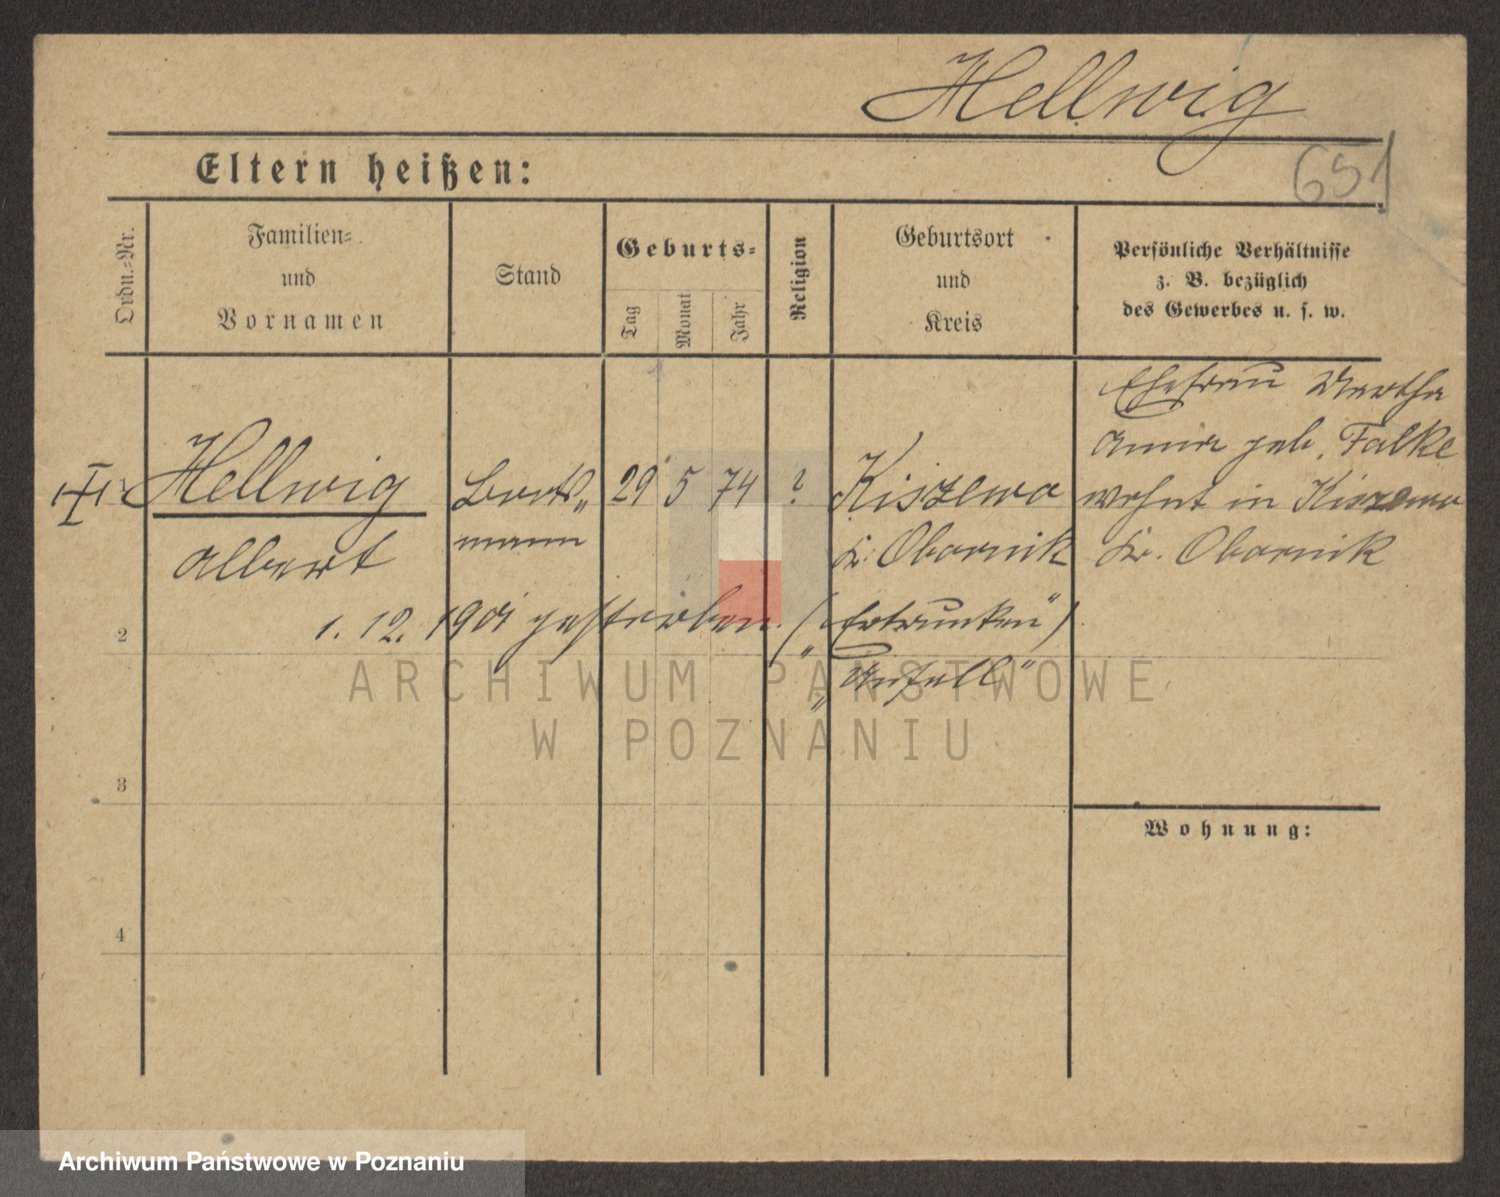 Hellwig
651
Eltern heißen:
Ordn.-Nr.
Familien-
und
Vornamen
Stand
Geburts-
Tag
Monat
Jahr
Religion
Geburtsort
und
Kreis
Persönliche Verhältnisse
z. B. bezüglich
des Gewerbes u. s. w.
Ehefrau Martha
Anna geb. Falke
Hellwig Boots„ 29 5 74 ? Kiszewo wohnt in Kiszewo
Albert mann Kr. Obornik Kr. Obornik
1. 12. 1901 gestorben. („Ertrunken")
„Unfall"
2
3
4
Wohnung:
ARCHIWUM PAŃSTWOWE
W POZNANIU
Archiwum Państwowe w Poznaniu